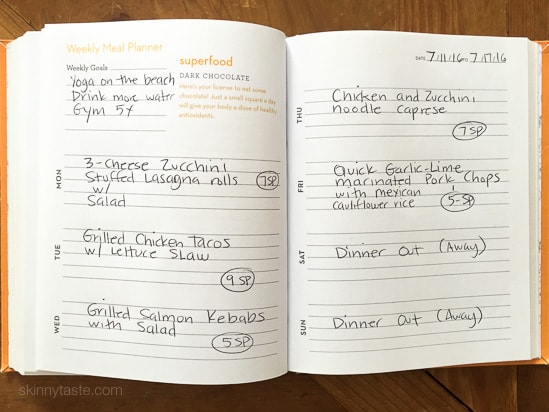 Weekly Meal Planner
Weekly Goals
Yoga on the beach
Drink more water
Gym 5x
superfood
DARK CHOCOLATE
Here's your license to eat some
chocolate! Just a small square a day
will give your body a dose of healthy
antioxidants.
MON
3-Cheese Zucchini
Stuffed Lasagna rolls
w/
Salad
7SP
TUE
Grilled Chicken Tacos
w/ Lettuce Slaw
9 SP
WED
Grilled Salmon Kebabs
with Salad
5 SP
DATE 7/11/16 TO 7/17/16
THU
Chicken and Zucchini
noodle caprese
7 SP
FRI
Quick Garlic-Lime
marinated Pork Chops
with mexican
cauliflower rice
5-SP
SAT
Dinner Out (Away)
SUN
Dinner Out (Away)
skinnytaste.com